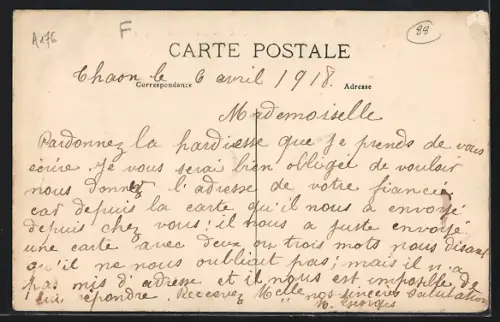 A176 F 88
CARTE POSTALE
Thaon le 6 avril 1918.
Correspondance Adresse
Mademoiselle
Pardonnez la hardiesse que je prends de vous
écrire. Je vous serai bien obligée de vouloir
nous donnez l'adresse de votre fiancé
car depuis la carte qu'il nous a envoyé
depuis chez vous; il nous a juste envoyé
une carte avec deux ou trois mots nous disant
qu'il ne nous oubliait pas; mais il n'a
pas mis d'adresse et il nous est impossible de
lui répondre. Recevez Melle nos sincères salutations
Georges